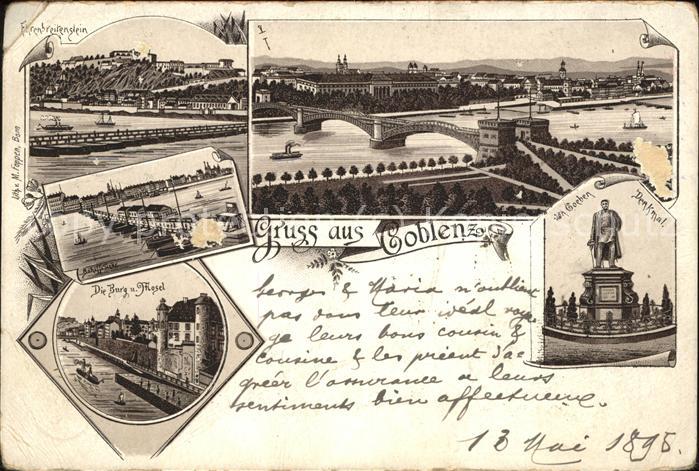 Ehrenbreitenstein
Lith. v. M.
Bonn
Schiffbrücke
Gruss aus Coblenz
von Goeben Denkmal.
Die Burg u. Mosel
Georges & Maria n'oublient
pas dans leur idéal voya
ge leurs bons cousin &
cousine & les prient d'a
gréer l'assurance de leurs
sentiments bien affectueux.
13 Mai 1895.